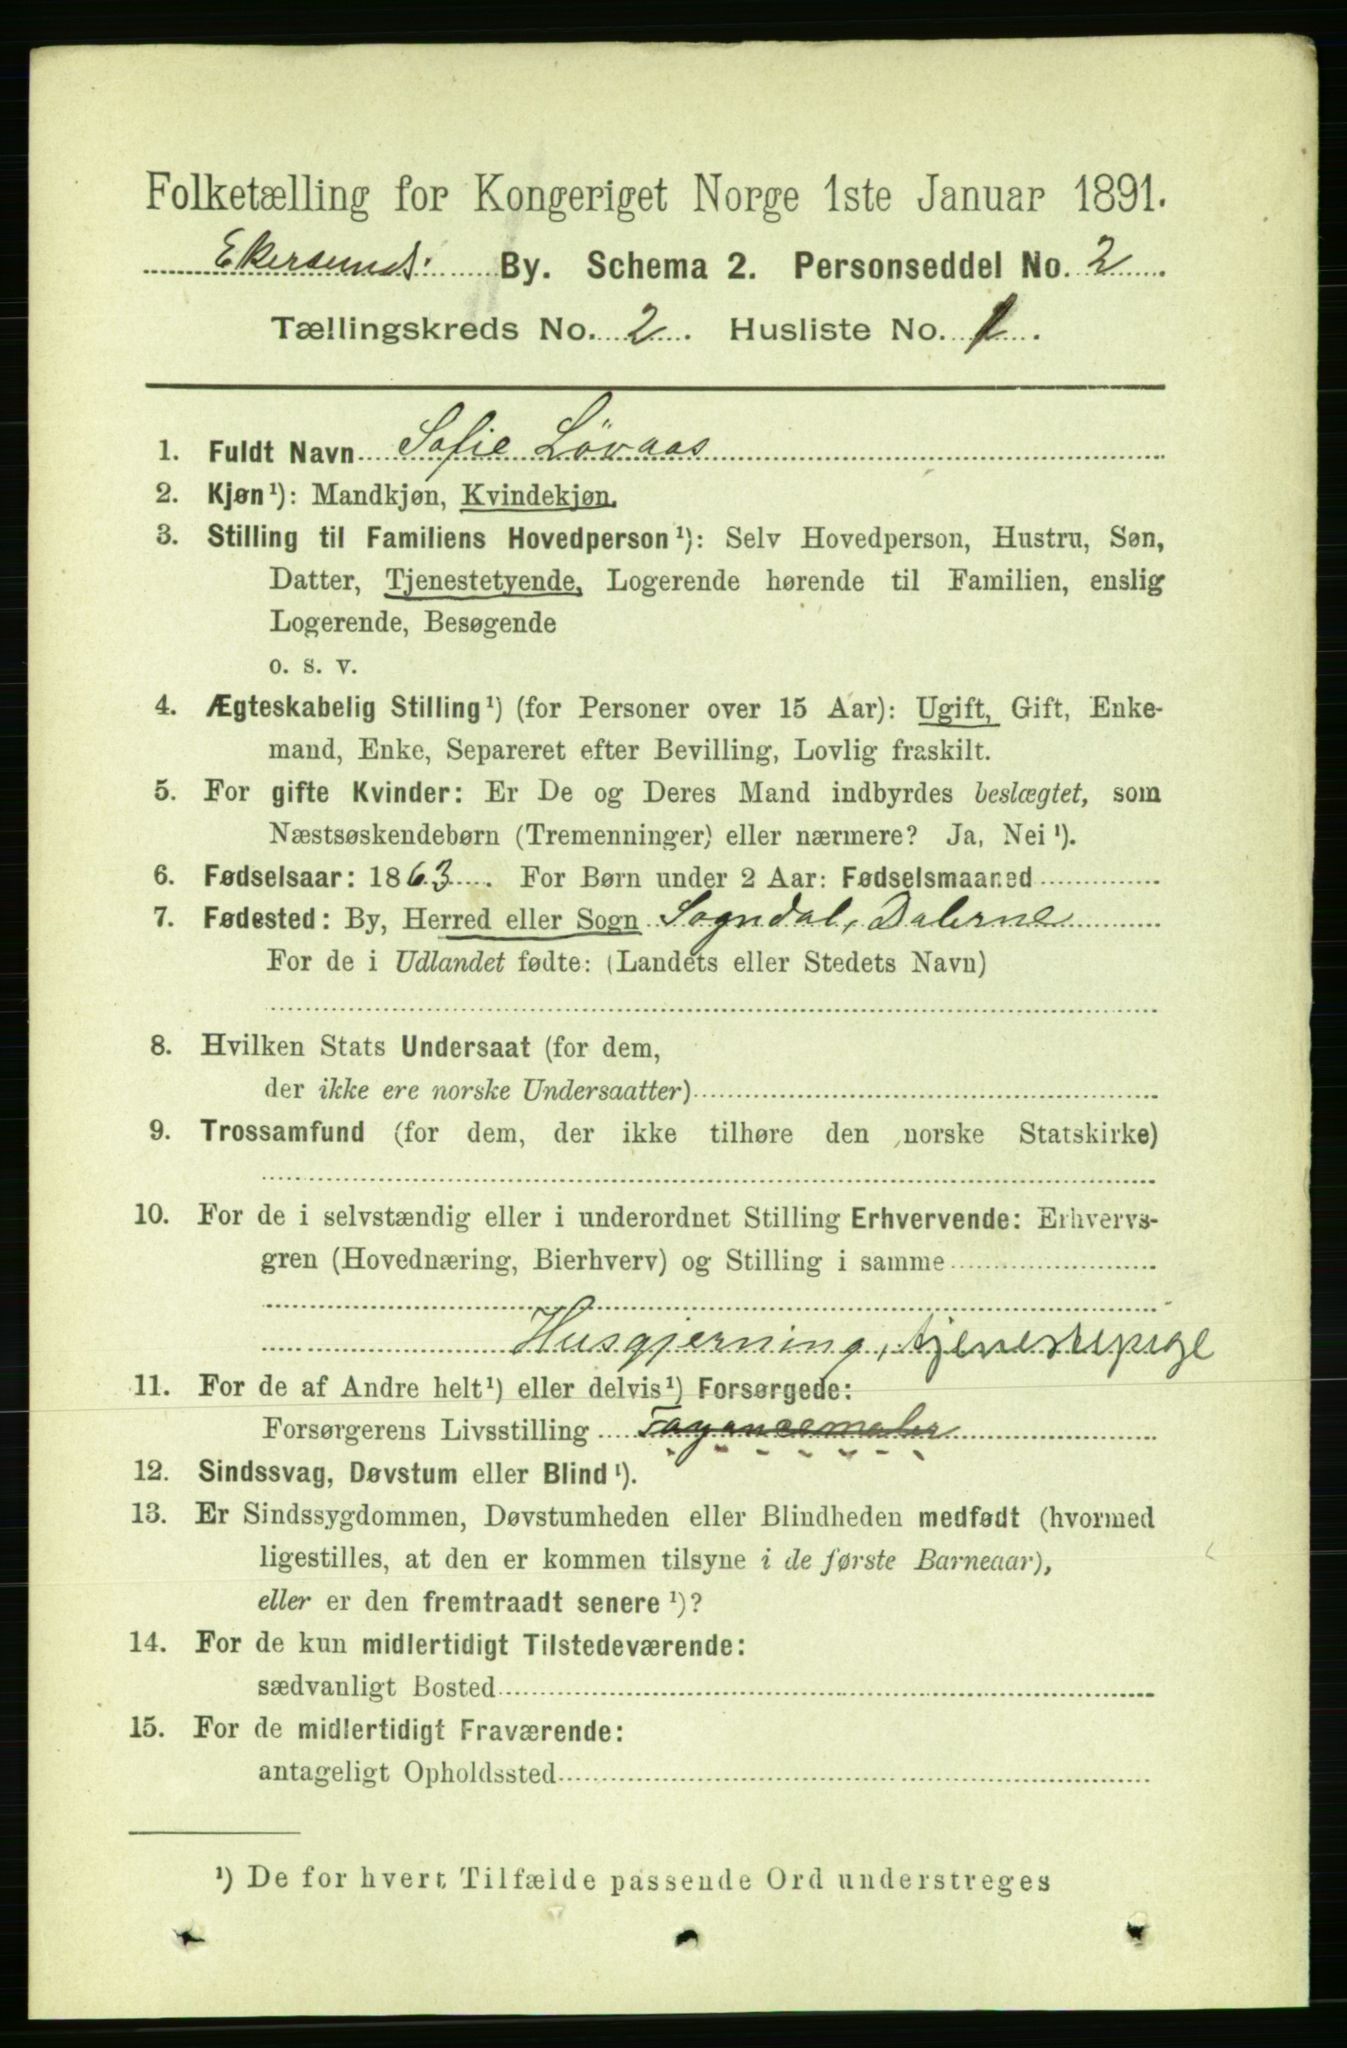 Folketælling for Kongeriget Norge 1ste Januar 1891.
Ekersunds By. Schema 2. Personseddel No. 2
Tællingskreds No. 2. Husliste No. 1.
1. Fuldt Navn Sofie Lövaas
2. Kjøn¹): Mandkjøn, Kvindekjøn.
3. Stilling til Familiens Hovedperson¹): Selv Hovedperson, Hustru, Søn,
Datter, Tjenestetyende, Logerende hørende til Familien, enslig
Logerende, Besøgende
o. s. v.
4. Ægteskabelig Stilling¹) (for Personer over 15 Aar): Ugift, Gift, Enke-
mand, Enke, Separeret efter Bevilling, Lovlig fraskilt.
5. For gifte Kvinder: Er De og Deres Mand indbyrdes beslægtet, som
Næstsøskendebørn (Tremenninger) eller nærmere? Ja, Nei¹).
6. Fødselsaar: 1863. For Børn under 2 Aar: Fødselsmaaned
7. Fødested: By, Herred eller Sogn Sogndal, Dalerne
For de i Udlandet fødte: (Landets eller Stedets Navn)
8. Hvilken Stats Undersaat (for dem,
der ikke ere norske Undersaatter)
9. Trossamfund (for dem, der ikke tilhøre den norske Statskirke)
10. For de i selvstændig eller i underordnet Stilling Erhvervende: Erhvervs-
gren (Hovednæring, Bierhverv) og Stilling i samme
Husgjerning, tjenestepige
11. For de af Andre helt¹) eller delvis¹) Forsørgede:
Forsørgerens Livsstilling Fayancemaler
12. Sindssvag, Døvstum eller Blind¹).
13. Er Sindssygdommen, Døvstumheden eller Blindheden medfødt (hvormed
ligestilles, at den er kommen tilsyne i de første Barneaar),
eller er den fremtraadt senere¹)?
14. For de kun midlertidigt Tilstedeværende:
sædvanligt Bosted
15. For de midlertidigt Fraværende:
antageligt Opholdssted
¹) De for hvert Tilfælde passende Ord understreges